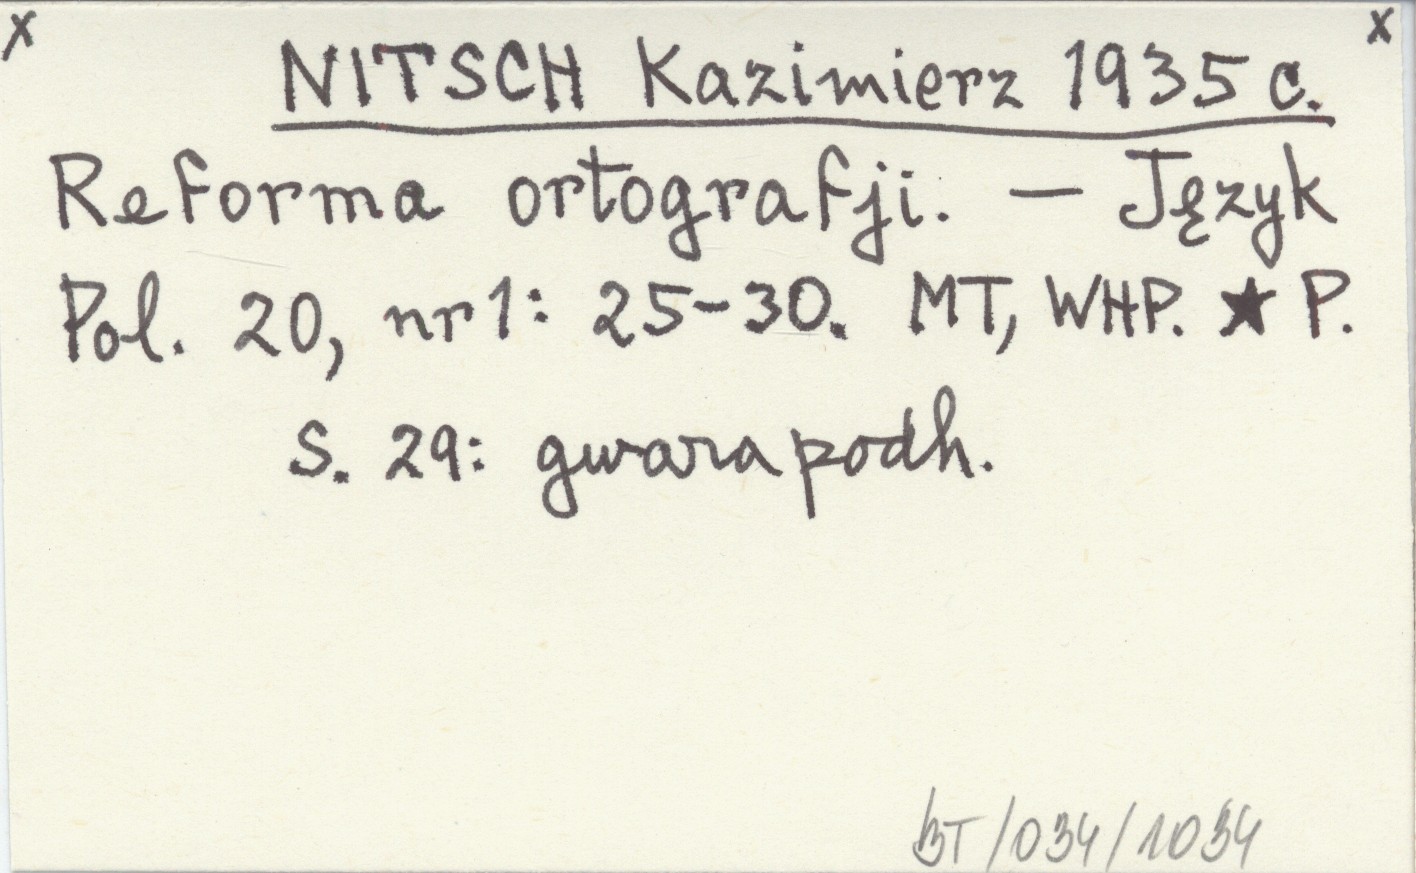 x x
NITSCH Kazimierz 1935 c.
Reforma ortografji. — Język
Pol. 20, nr 1: 25-30. MT, WHP. ★ P.
S. 29: gwara podh.
BT/034/1034